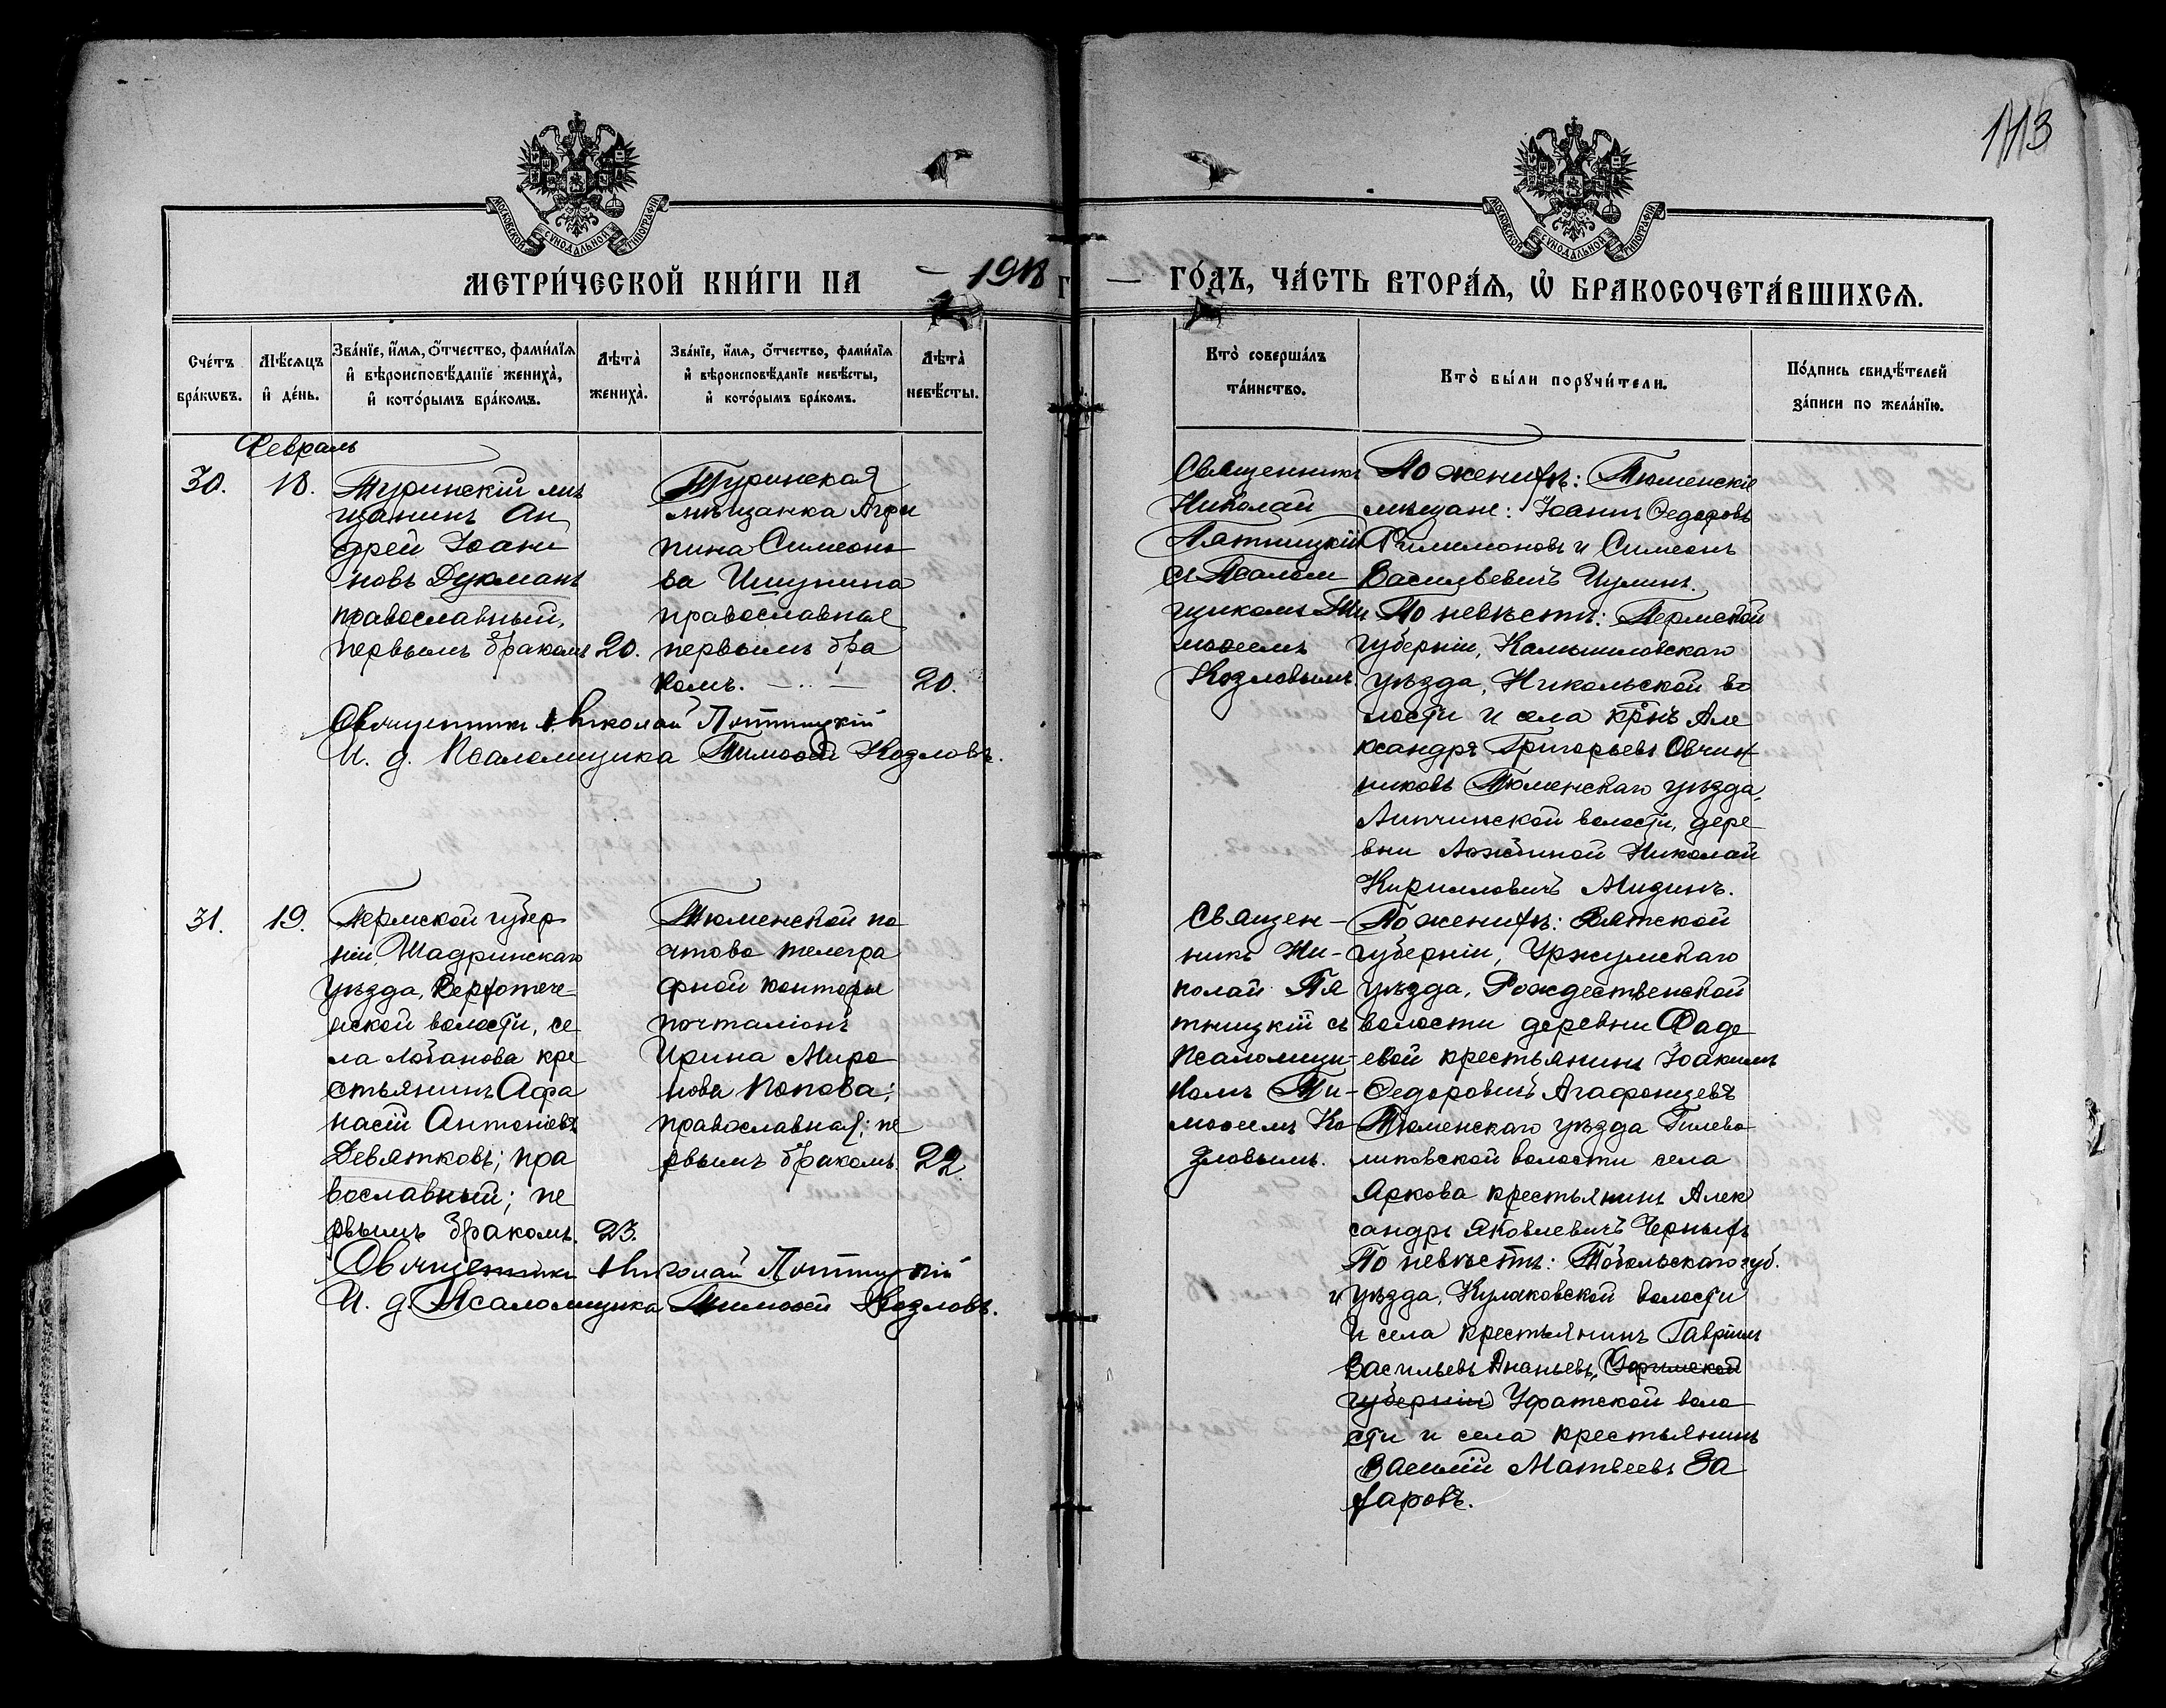 113
МОСКОВСКОЙ СѴНОДАЛЬНОЙ ТИПОГРАФІИ
МОСКОВСКОЙ СѴНОДАЛЬНОЙ ТИПОГРАФІИ
МЕТРИ́ЧЕСКОЙ КНИ́ГИ НА — 1918 г — ГО́ДЪ, ЧА́СТЬ ВТОРА́Ѧ, Ѡ҆ БРАКОСОЧЕТА́ВШИХСѦ.
Сче́тъ бра́кѡвъ.
Мѣ́сѧцъ и҆ де́нь.
Зва́нїе, и҆́мѧ, ѻ҆́тчество, фами́лїѧ и҆ вѣроисповѣ́данїе жениха̀, и҆ кото́рымъ бра́комъ.
Лѣта̀ жениха̀.
Зва́нїе, и҆́мѧ, ѻ҆́тчество, фами́лїѧ и҆ вѣроисповѣ́данїе невѣ́сты, и҆ кото́рымъ бра́комъ.
Лѣта̀ невѣ́сты.
Кто̀ соверша́лъ та́инство.
Кто̀ бы́ли порꙋчи́тели.
По́дпись свидѣ́телей за́писи по жела́нїю.
Февраль
30.
18.
Туринскій мѣ
щанинъ Ан
дрей Іоан
новъ Дукманъ
православный,
первымъ бракомъ
20.
Туринская
мѣщанка Агри
пина Симеоно
ва Ишунина
православная
первымъ бра
комъ. — .. —
20.
Священникъ Николай Пятницкій
И. д. Псаломщика Тимоѳей Козловъ.
Священникъ
Николай
Пятницкій
съ Псалом
щикомъ Ти
моѳеемъ
Козловымъ.
По женихѣ: Тюменскіе
мѣщане: Іоаннъ Ѳедоровъ
Филимоновъ и Симеонъ
Васильевичъ Чулинъ.
По невѣстѣ: Пермской
губерніи, Камышловскаго
уѣзда, Никольской во
лости и села кр̃нъ Але
ксандръ Григорьевъ Овчин
никовъ Тюменскаго уѣзда,
Липчинской волости, дере
вни Николай
Кирилловичъ Мизинъ.
31.
19.
Пермской губер
ніи, Шадринскаго
уѣзда, Верхотече
нской волости, се
ла Лобанова кре
стьянинъ Афа
насій Антоніевъ
Девятковъ; пра
вославный; пе
рвымъ бракомъ.
23.
Тюменской по
чтово телегра
фной конторы
почталіонъ
Ирина Миро
нова Попова;
православная; пе
рвымъ бракомъ.
22
Священникъ Николай Пятницкій
И. д. Псаломщика Тимоѳей Козловъ.
Священ-
никъ Ни-
колай Пя
тницкій съ
Псаломщи-
комъ Ти-
моѳеемъ Ко
зловымъ.
По женихѣ: Вятской
губерніи, Уржумскаго
уѣзда, Рождественской
волости деревни Фаде
евой крестьянинъ Іоакимъ
Ѳедоровичъ Агафонцевъ
Тюменскаго уѣзда Гилево
липовской волости села
Яркова крестьянинъ Алек
сандръ Яковлевичъ Черныхъ
По невѣстѣ: Тобольскаго губ.
и уѣзда, Кулаковской волости
и села крестьянинъ Гавріилъ
Васильевъ Ананьевъ, Уфимской
губерніи Уфатской воло
сти и села крестьянинъ
Василій Матвеевъ За
харовъ.